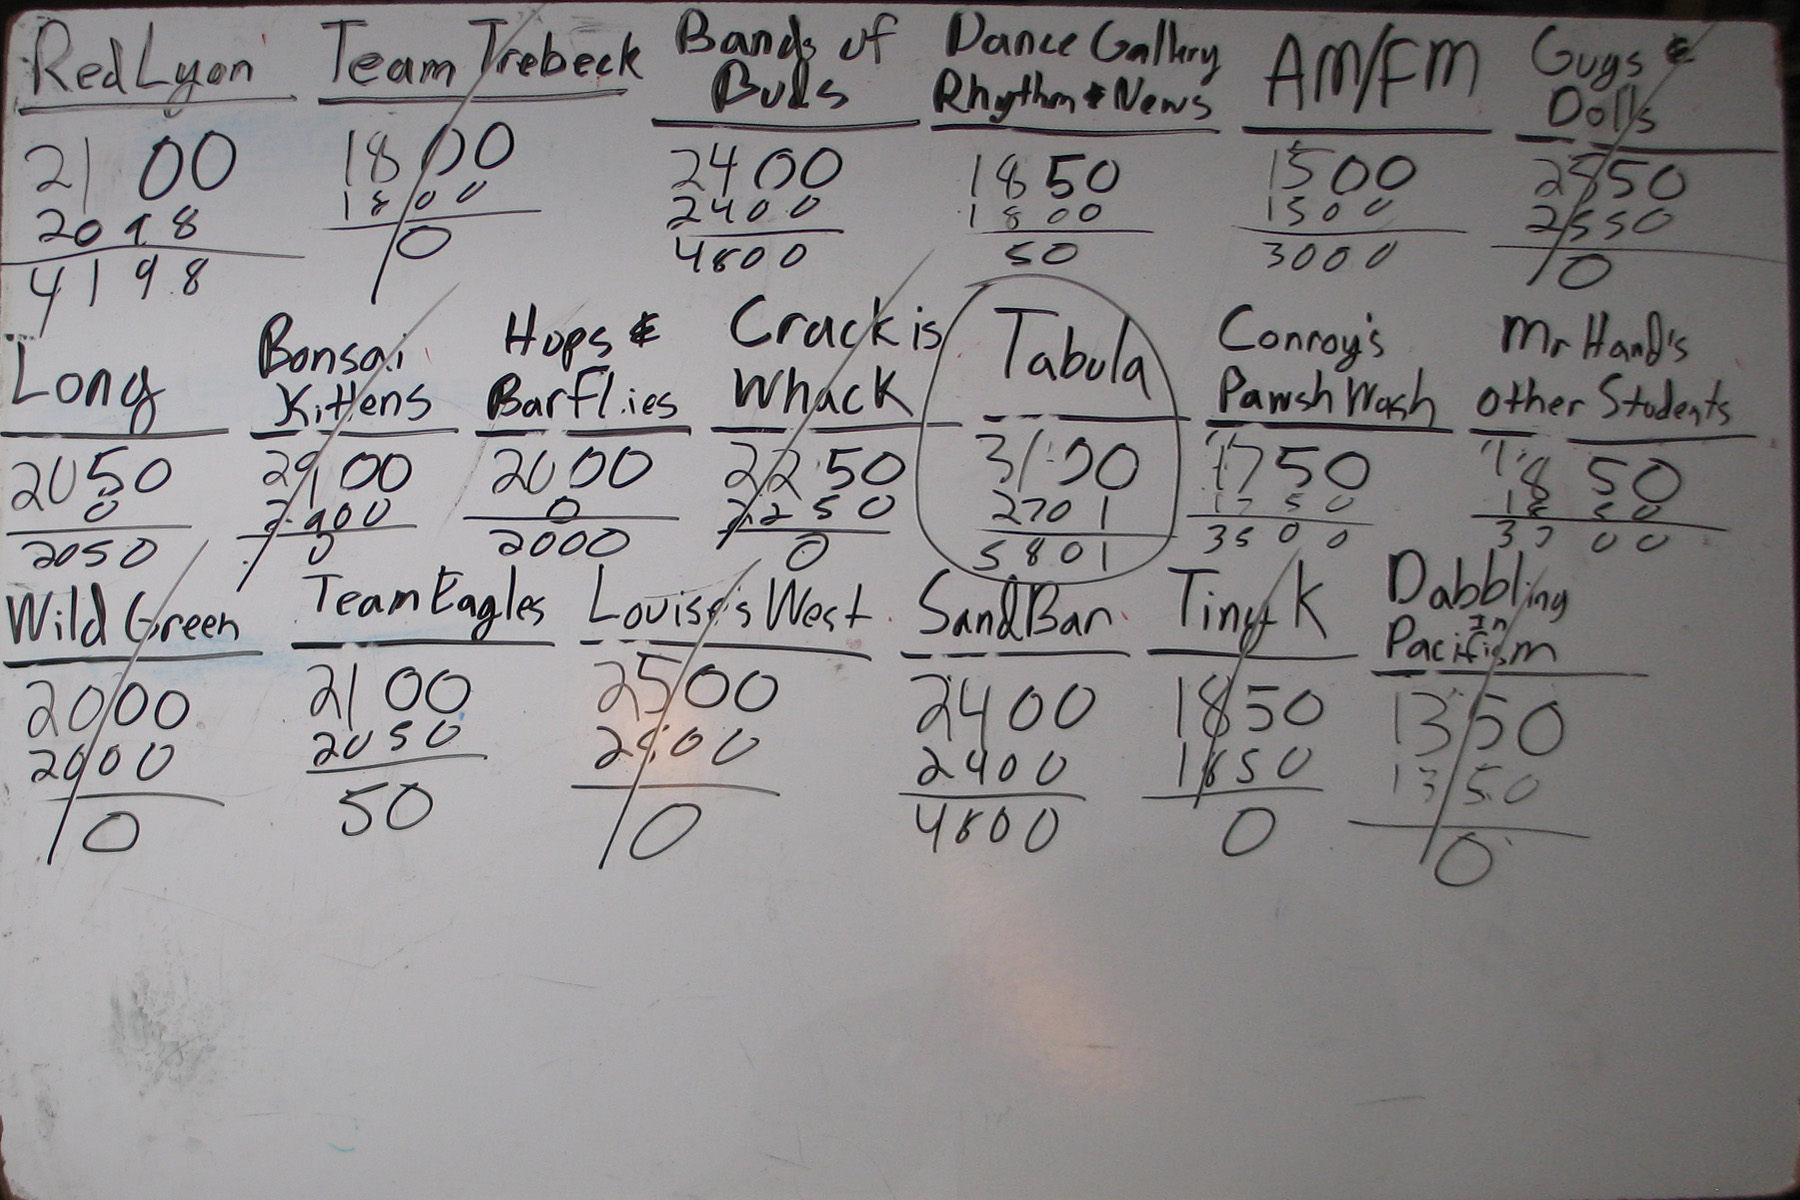 Red Lyon
2100
2098
4198
Team Trebeck
1800
1800
0
Bands of
Buds
2400
2400
4800
Dance Gallery
Rhythm & News
1850
1800
50
AM/FM
1500
1500
3000
Guys &
Dolls
2550
2550
0
Long
2050
0
2050
Bonsai
Kittens
2900
2900
0
Hops &
BarFlies
2000
0
2000
Crack is
Whack
2250
2250
0
Tabula
3100
2701
5801
Conroy's
Pawsh Wash
1750
1750
3500
Mr Hand's
other Students
1850
1850
3700
Wild Green
2000
2000
0
Team Eagles
2100
2050
50
Louise's West
2500
2500
0
SandBar
2400
2400
4800
Tiny K
1850
1850
0
Dabbling
In
Pacifism
1350
1350
0